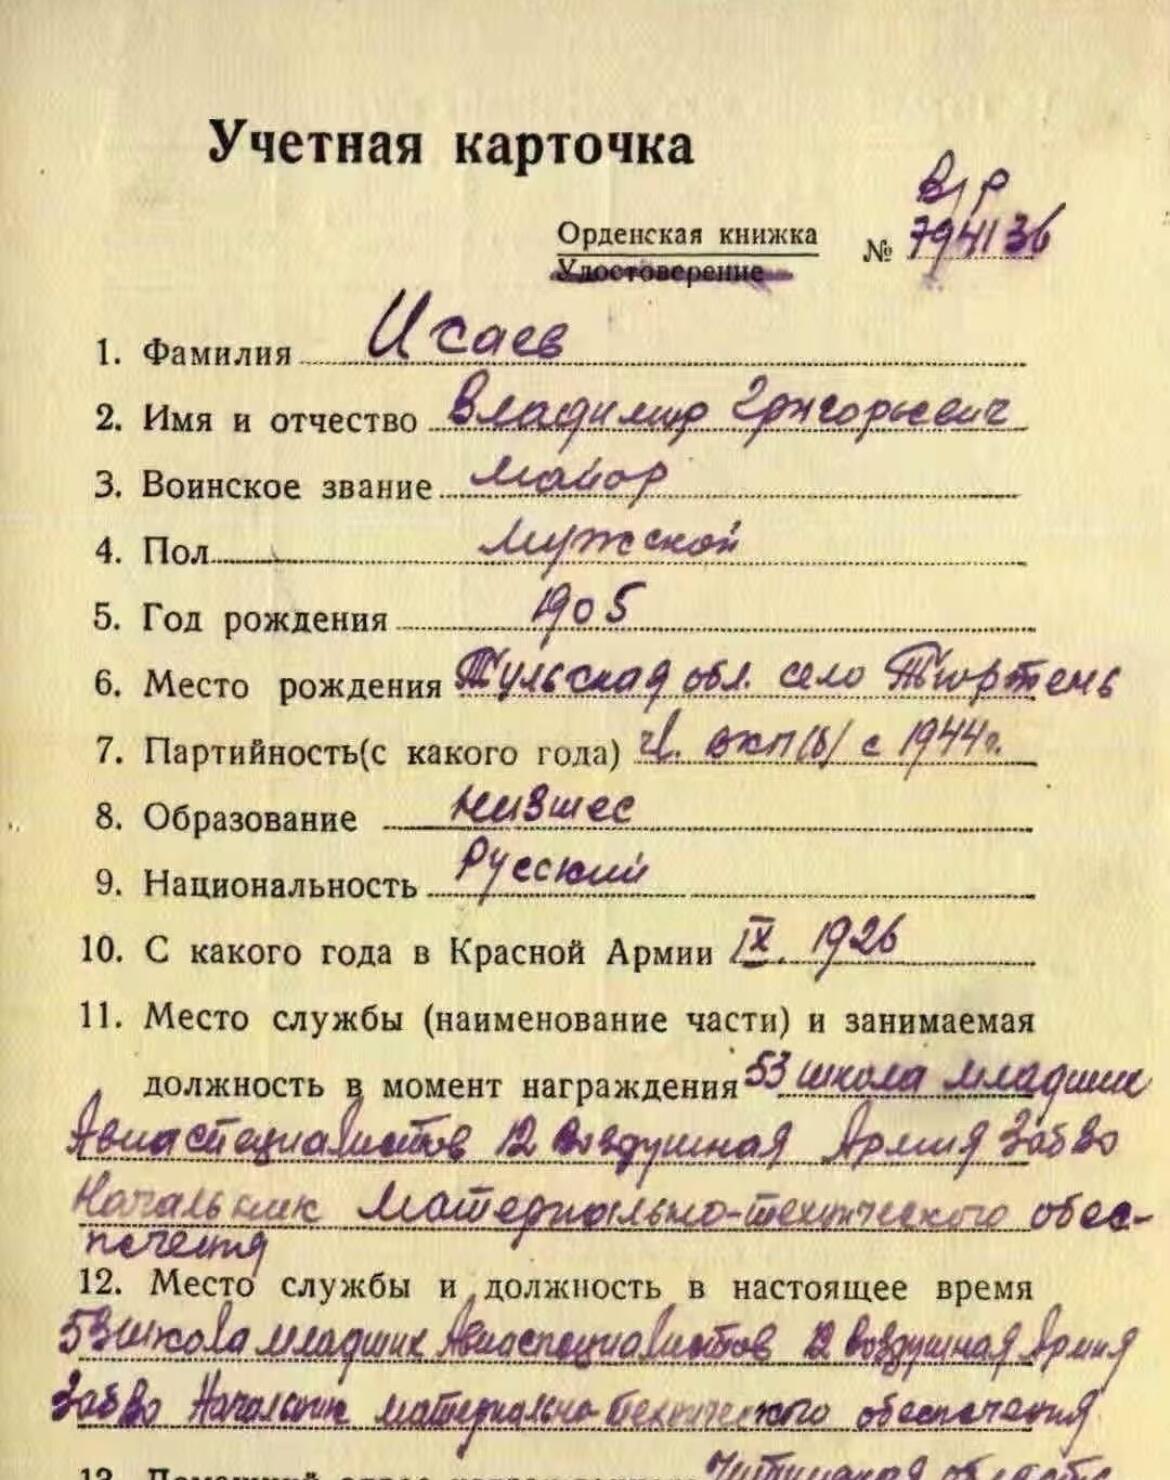 Учетная карточка
В/р
Орденская книжка № 794136
Удостоверение
1. Фамилия Исаев
2. Имя и отчество Владимир Григорьевич
3. Воинское звание Майор
4. Пол Мужской
5. Год рождения 1905
6. Место рождения Тульская обл. село Тюртень
7. Партийность(с какого года) чл. ВКП(б) с 1944г.
8. Образование низшее
9. Национальность Русский
10. С какого года в Красной Армии IX. 1926
11. Место службы (наименование части) и занимаемая
должность в момент награждения 53 школа младших
Авиаспециалистов 12 Воздушная Армия ЗабВО
Начальник Материально-технического обес-
печения
12. Место службы и должность в настоящее время
53 школа младших Авиаспециалистов 12 Воздушная Армия
ЗабВО Начальник материально-технического обеспечения
13. Домашний адрес Читинская